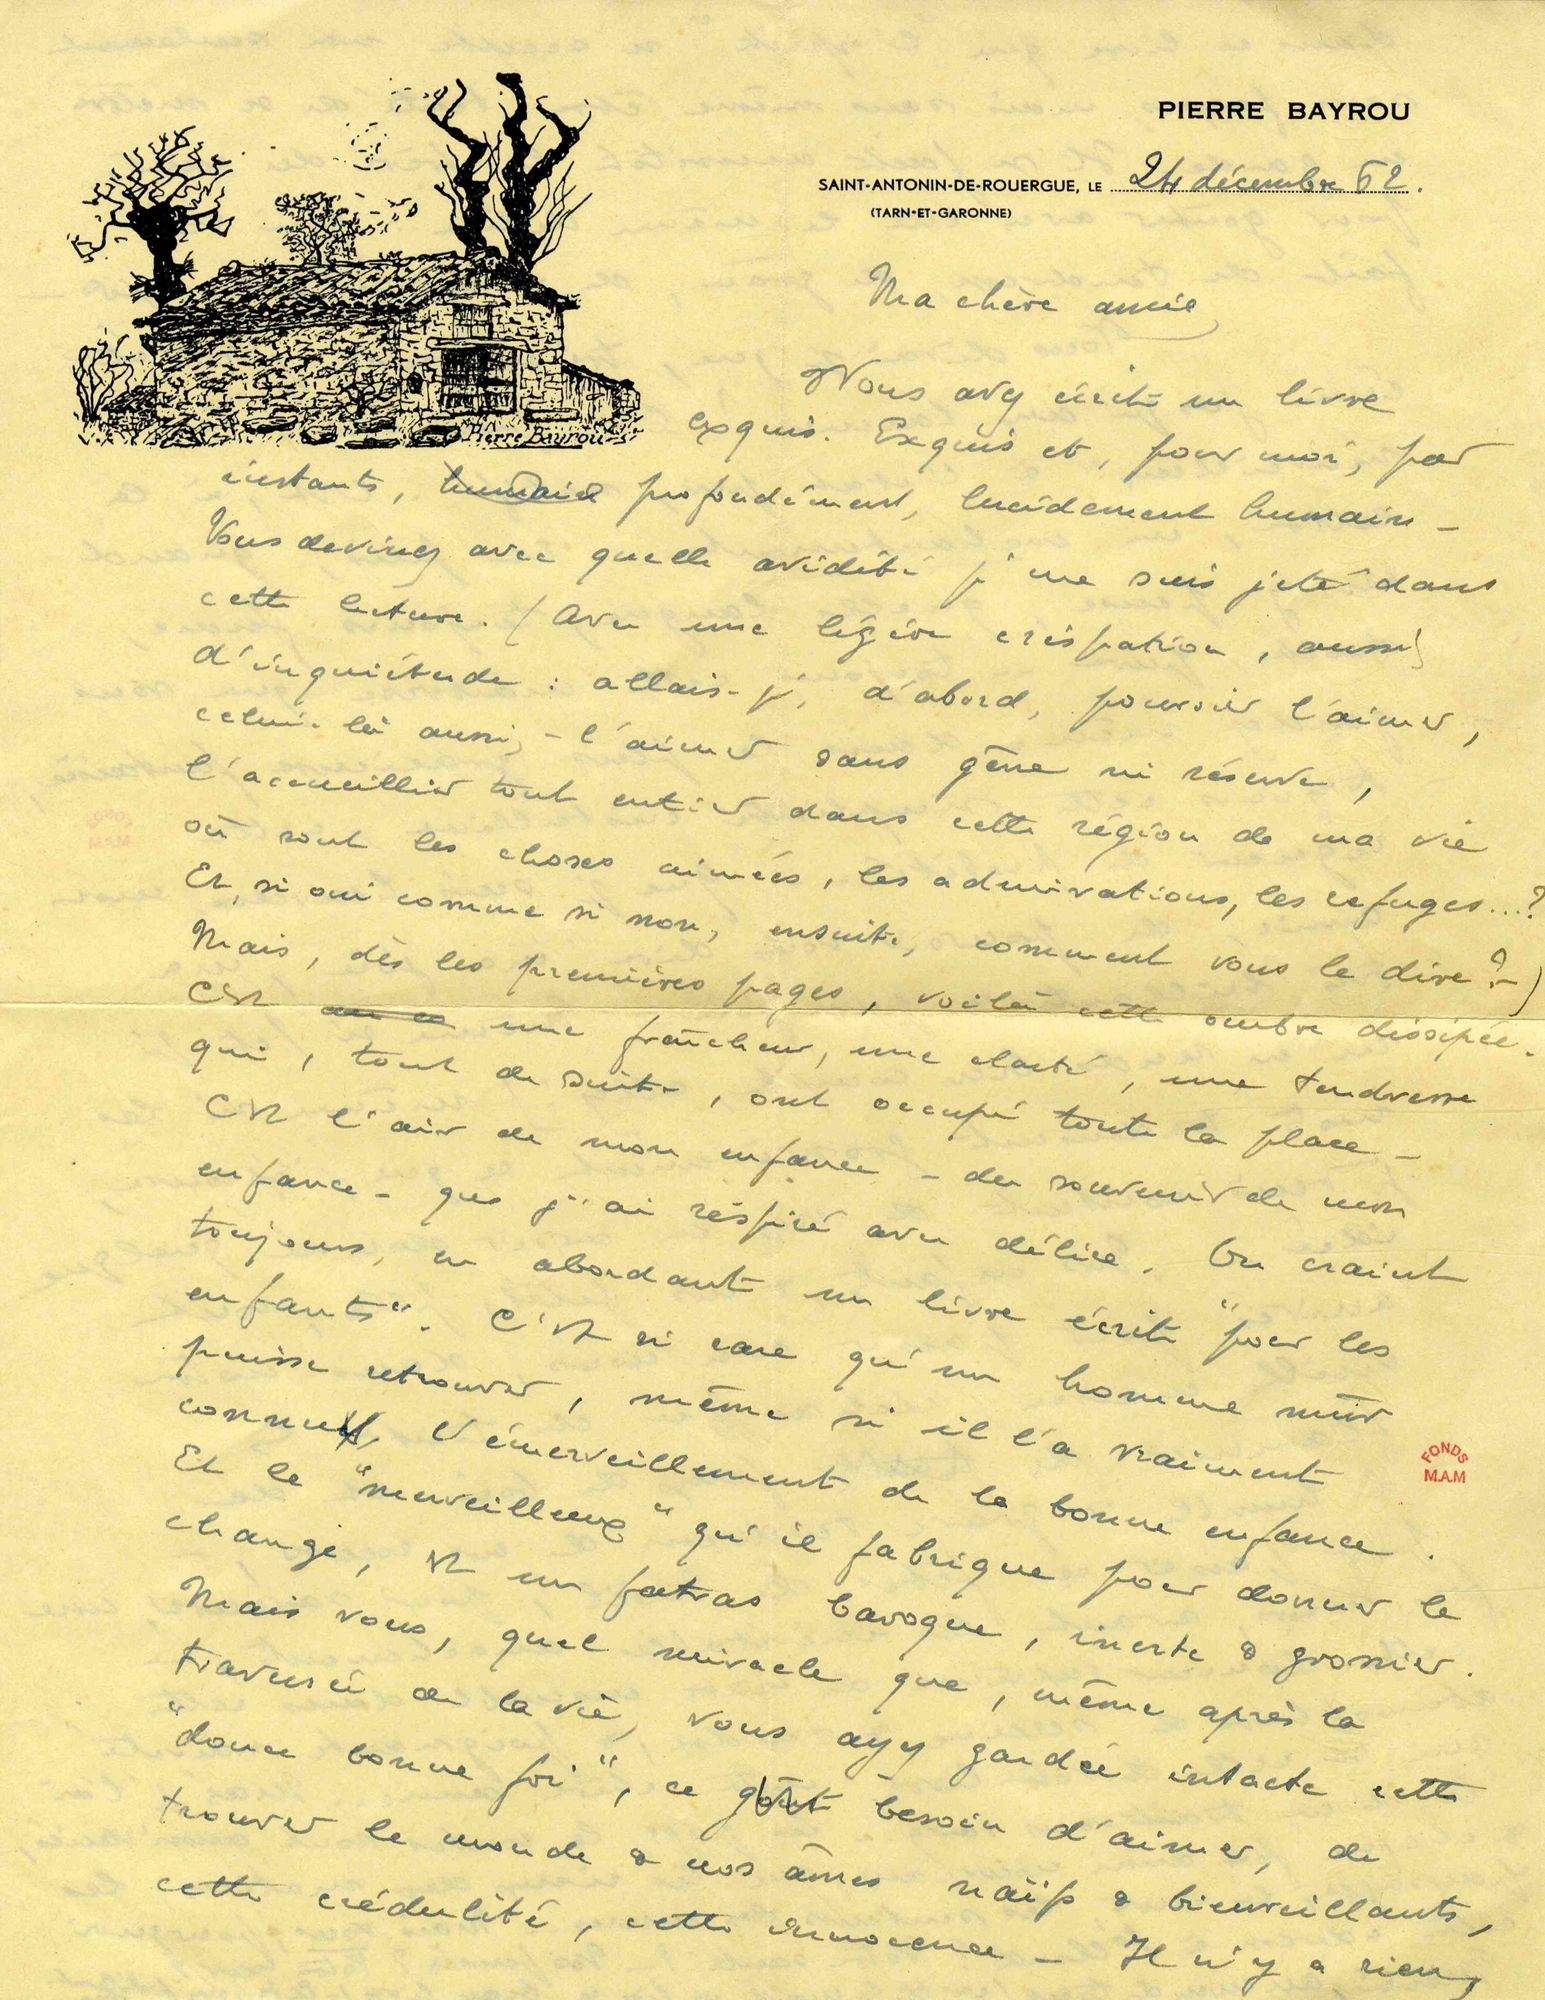 PIERRE BAYROU
SAINT-ANTONIN-DE-ROUERGUE, LE 24 décembre 62.
(TARN-ET-GARONNE)
Pierre Bayrou
Ma chère amie,
Vous avez écrit un livre
exquis. Exquis et, pour moi, par
instants, humain profondément, lucidement humain –
Vous devinez avec quelle avidité je me suis jeté dans
cette lecture. (Avec une légère crispation, aussi,
d'inquiétude : allais-je, d'abord, pouvoir l'aimer,
celui-là aussi, – l'aimer sans gêne ni réserve,
l'accueillir tout entier dans cette région de ma vie
où sont les choses aimées, les admirations, les refuges...?
Et, si oui comme si non, ensuite, comment vous le dire ? –)
Mais, dès les premières pages, voilà cette ombre dissipée.
C'est une fraîcheur, une clarté, une tendresse
qui, tout de suite, ont occupé toute la place –
C'est l'air de mon enfance – du souvenir de mon
enfance – que j'ai respiré avec délice. On craint
toujours, en abordant un livre écrit "pour les
enfants". C'est si rare qu'un homme mûr
puisse retrouver, même si il l'a vraiment
connu, l'émerveillement de la bonne enfance.
Et le "merveilleux" qu'il fabrique pour donner le
change, est un fatras baroque, inerte & grossier.
Mais vous, quel miracle que, même après la
traversée de la vie, vous ayez gardée intacte cette
"douce bonne foi", ce goût besoin d'aimer, de
trouver le monde & nos âmes naïfs & bienveillants,
cette crédulité, cette innocence – Il n'y a rien,
FONDS
M.A.M